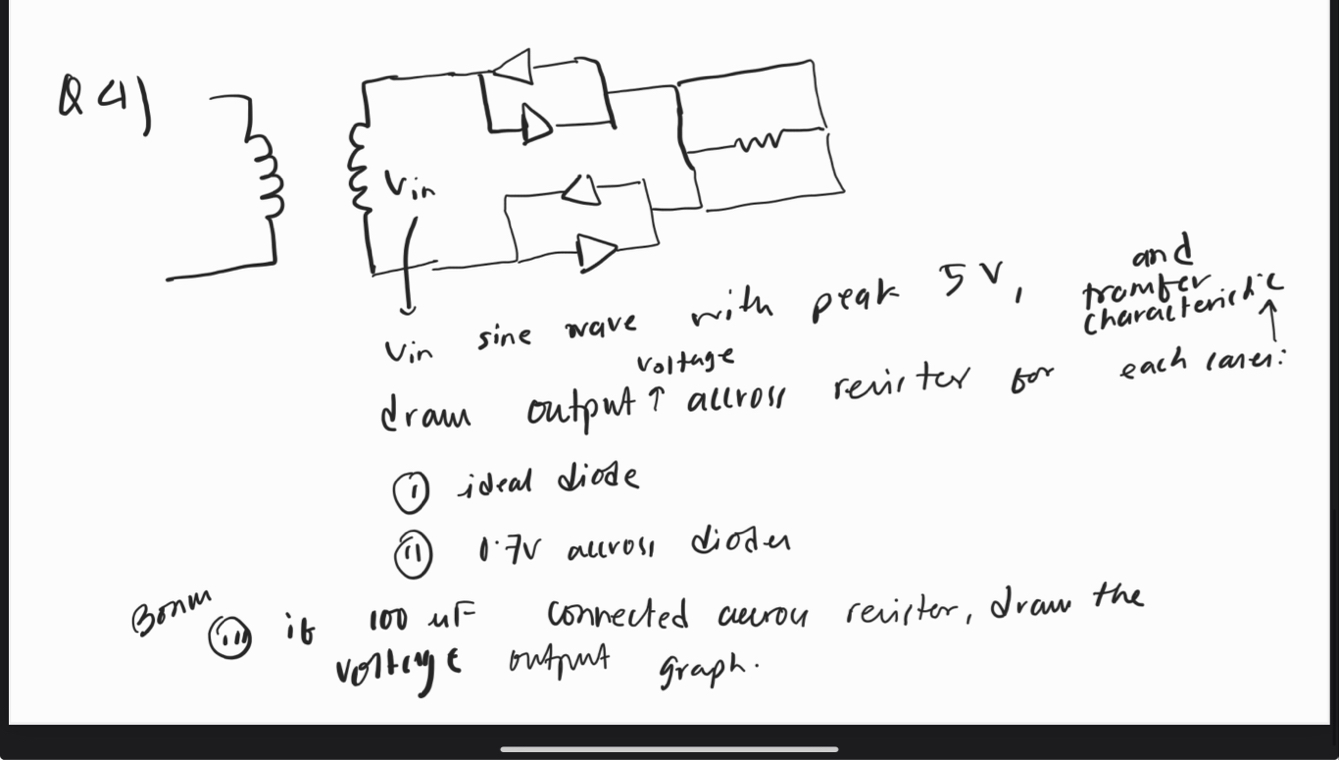 Q4)
Vin
Vin sine wave with peak 5V, and
tranfer
characteristic
voltage
draw output ↑ accross resister for each cases:
(i) ideal diode
(ii) 0.7V accross diodes
Bonus (iii) if 100 uF connected across resister, draw the
voltage output graph.